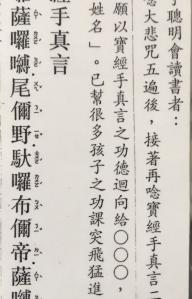 聰明會讀書者：
念大悲咒五遍後，接著再唸寶經手真言二
願以寶經手真言之功德迴向給○○○，
姓名」。已幫很多孩子之功課突飛猛進
經手真言
薩囉嚩尾儞野馱囉布儞帝薩嚩